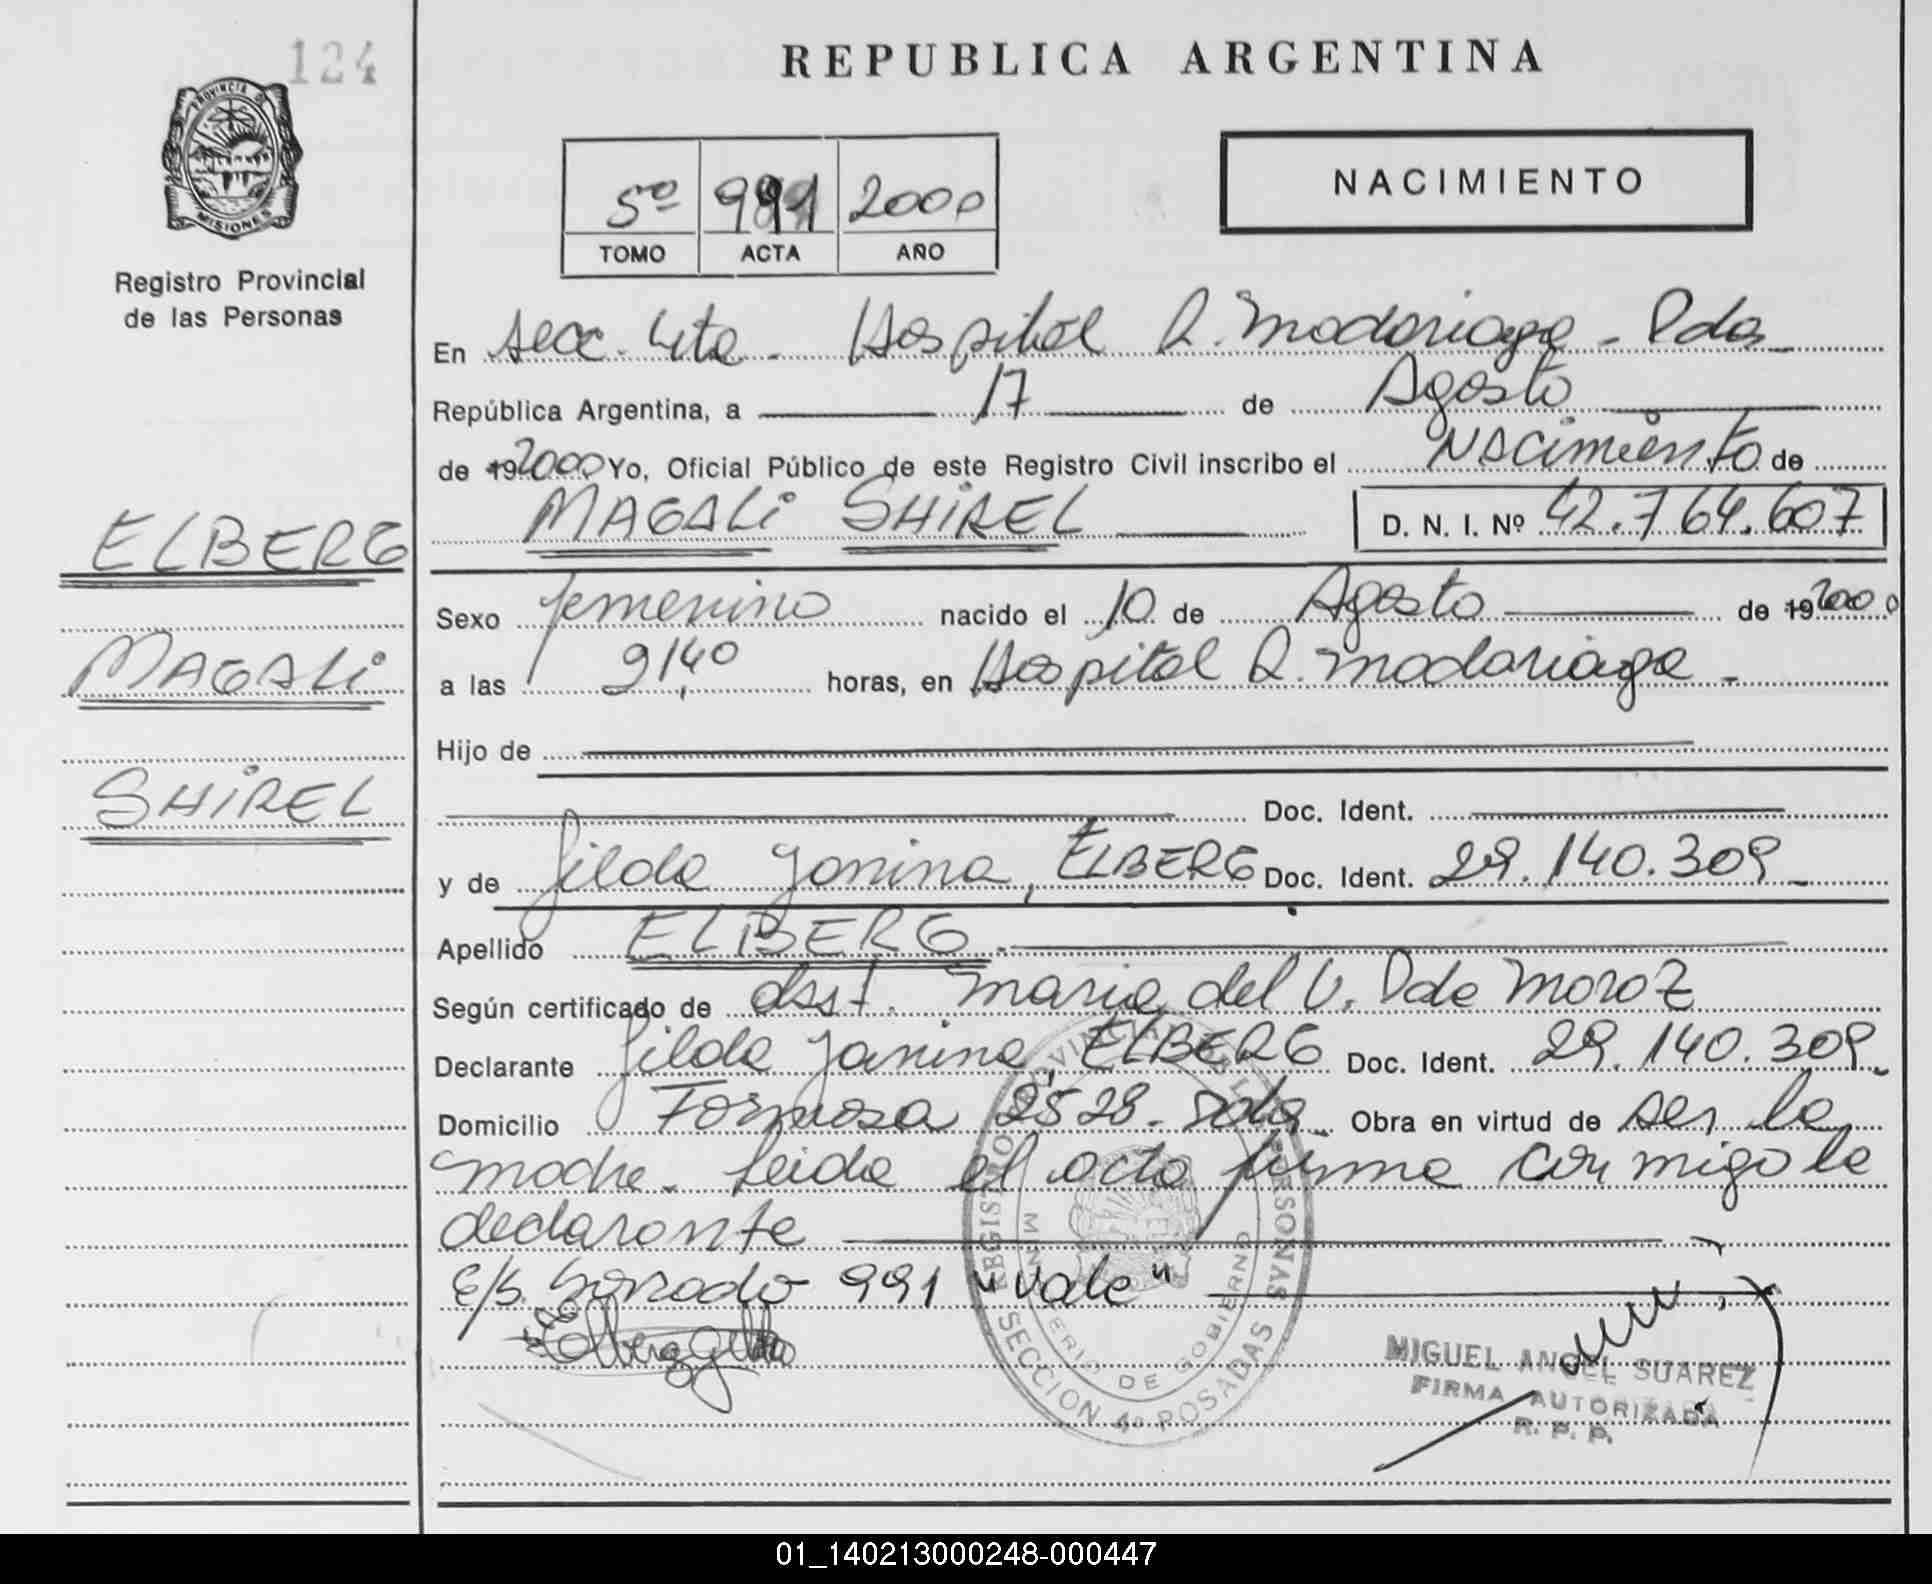 124
REPUBLICA ARGENTINA
PROVINCIA DE
MISIONES
Registro Provincial
de las Personas
5º 991 2000
TOMO ACTA AÑO
NACIMIENTO
En Secc. 4ta. Hospital R. Madariaga - Pdas
República Argentina, a 17 de Agosto
de 19 2000 Yo, Oficial Público de este Registro Civil inscribo el Nacimiento de
MAGALi SHiREL D. N. I. Nº 42.764.607
ELBERG
MAGALi
SHiREL
Sexo femenino nacido el 10 de Agosto de 19 2000
a las 9,40 horas, en Hospital R. Madariaga -
Hijo de
Doc. Ident.
y de Gilda Janina, ELBERG Doc. Ident. 29.140.309 -
Apellido ELBERG -
Según certificado de obst. Maria del V. P de Moroz
Declarante Gilda Janina, ELBERG Doc. Ident. 29.140.309 -
Domicilio Formosa 2528 - Pdas Obra en virtud de ser la
madre - Leida el acta firma conmigo la
declarante
E/S. borrado 991 "vale"
Elberg Gilda
REGISTRO PROVINCIAL DE LAS PERSONAS
MINISTERIO DE GOBIERNO
SECCION 4º POSADAS
MIGUEL ANGEL SUAREZ
FIRMA AUTORIZADA
R. P. P.
01_140213000248-000447